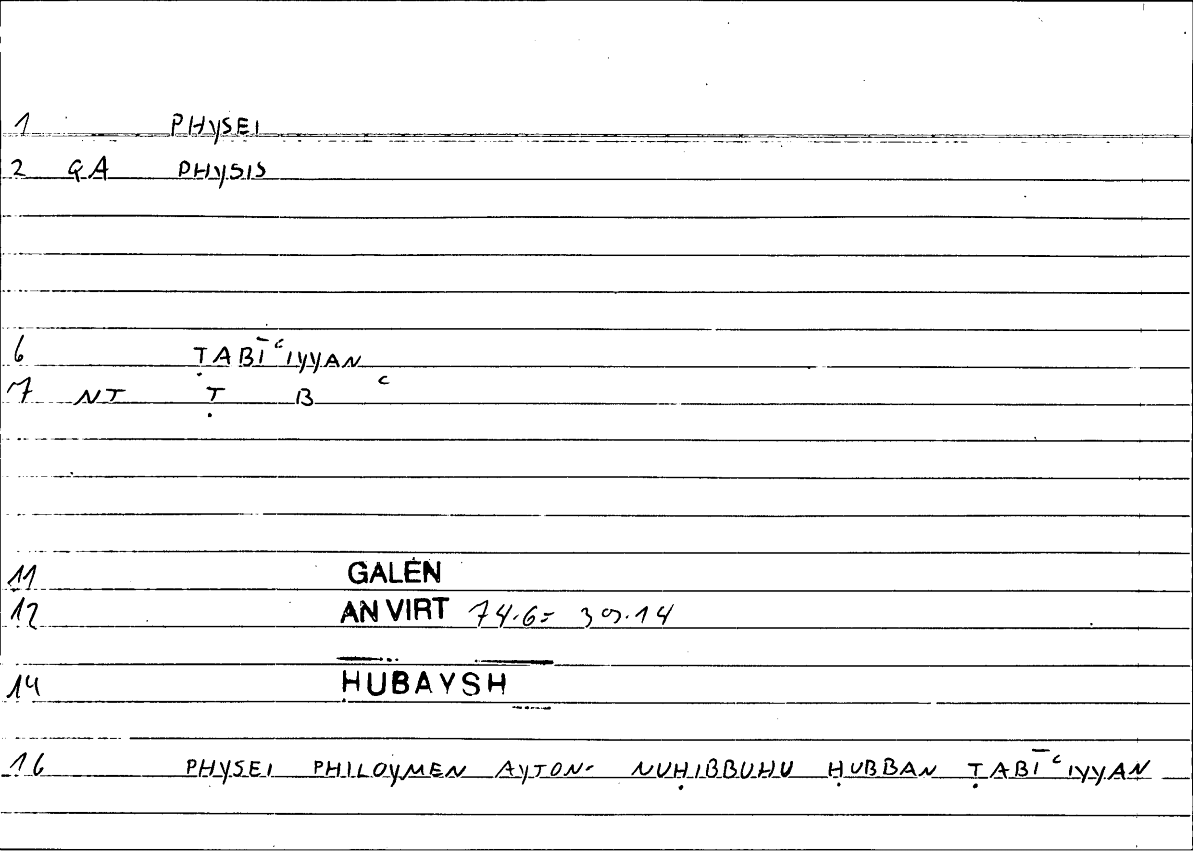 1 PHYSEI
2 QA PHYSIS
6 ṬABĪʿIYYAN
7 NT Ṭ B ʿ
11 GALEN
12 AN VIRT 74.6= 39.14
14 ḤUBAYSH
16 PHYSEI PHILOYMEN AYTON- NUḤIBBUHU ḤUBBAN ṬABĪʿIYYAN